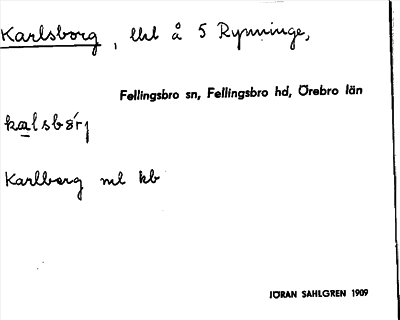 Karlsborg, lht å 5 Rynninge,
Fellingsbro sn, Fellingsbro hd, Örebro län
kalsbórj
Karlberg ml kb
JÖRAN SAHLGREN 1909